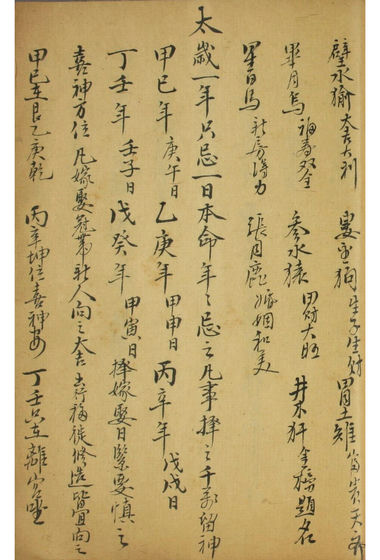 壁水㺄 大吉大利 婁金狗 生子生財 胃土雉 富貴天
畢月烏 福壽双全 参水猿 田財大旺 井木犴 金榜題名
星日馬 得力 張月鹿 婚姻和美
太歲一年只忌一日本命年々忌之凡事擇之千萬留神
甲巳年 庚午日 乙庚年 甲申日 丙辛年 戊戌日
丁壬年 壬子日 戊癸年 甲寅日 擇嫁娶日緊要慎之
喜神方位 凡嫁娶冠帶新人向之大吉 出行移徙修造皆宜向之
甲巳在艮乙庚乾 丙辛坤位喜神安 丁壬只在離宮坐